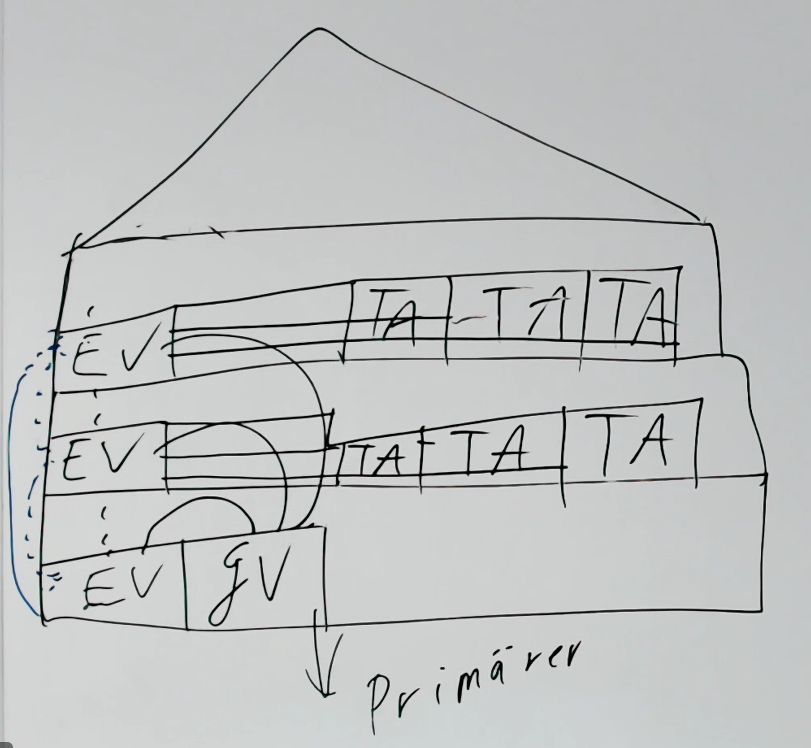 EV TA TA TA
EV TA TA TA
EV GV
Primärer